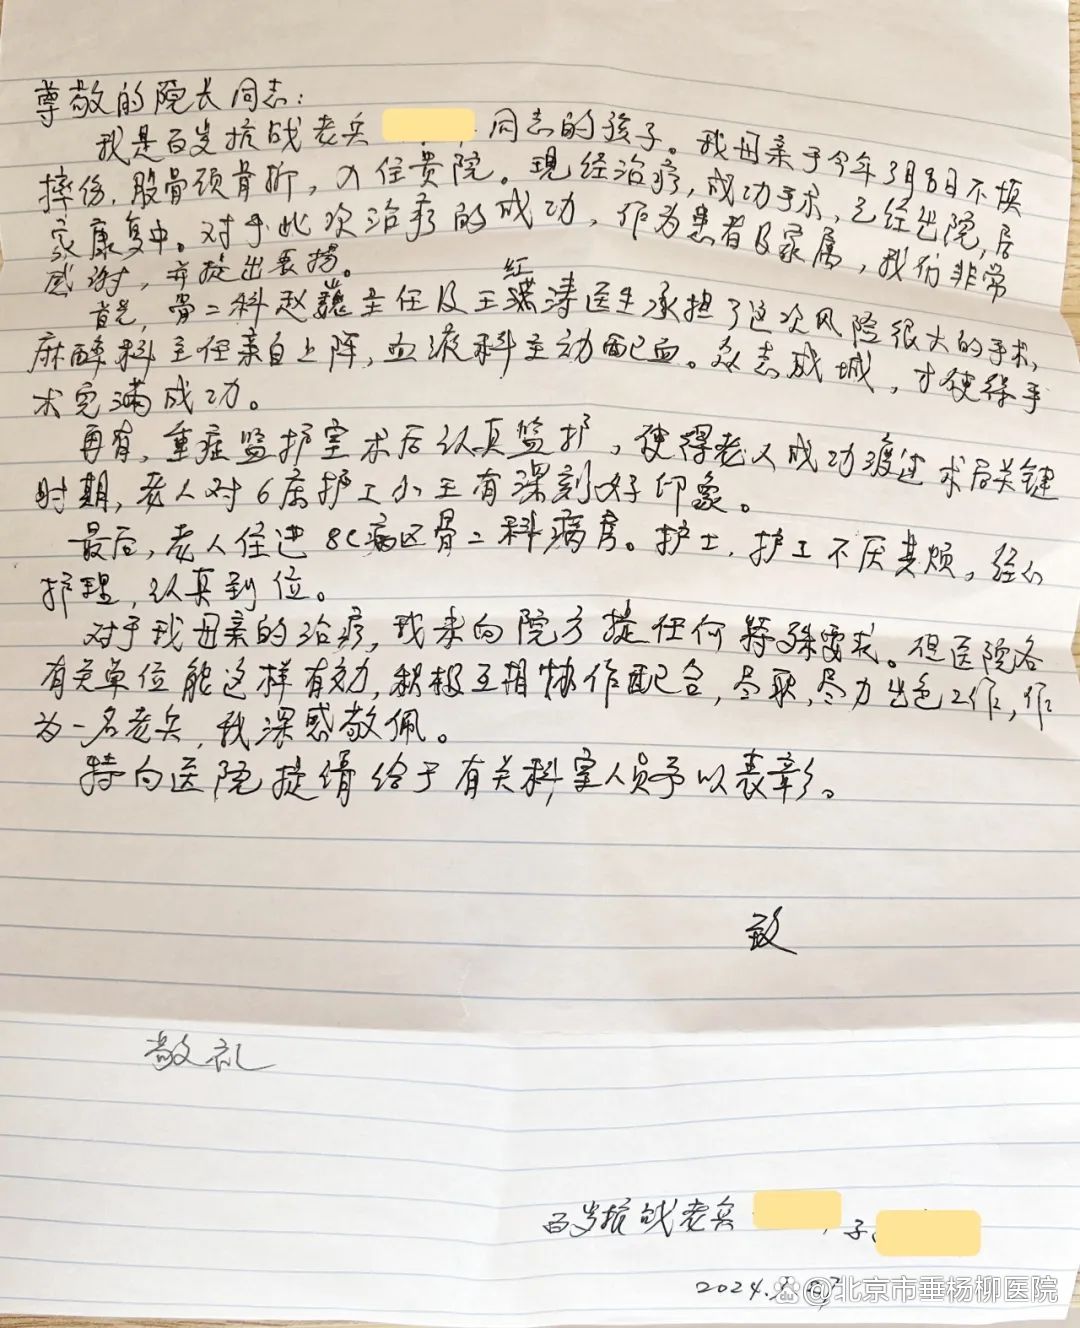 尊敬的院长同志：
我是百岁抗战老兵 同志的孩子。我母亲于今年3月8日不慎
摔伤，股骨颈骨折，入住贵院。现经治疗，成功手术，已经出院，居
家康复中。对于此次治疗的成功，作为患者及家属，我们非常
感谢，并提出表扬。
首先，骨二科赵巍主任及王红涛医生承担了这次风险很大的手术，
麻醉科主任亲自上阵，血液科主动配血。众志成城，才使得手
术完满成功。
再有，重症监护室术后认真监护，使得老人成功渡过术后关键
时期，老人对6床护工小王有深刻好印象。
最后，老人住进8C病区骨二科病房。护士，护工不厌其烦，经心
护理，认真到位。
对于我母亲的治疗，我未向院方提任何特殊要求。但医院各
有关单位能这样有效，积极互相协作配合，尽职，尽力出色工作，作
为一名老兵，我深感敬佩。
特向医院提请给于有关科室人员予以表彰。
致
敬礼
百岁抗战老兵 子
2024.
北京市垂杨柳医院